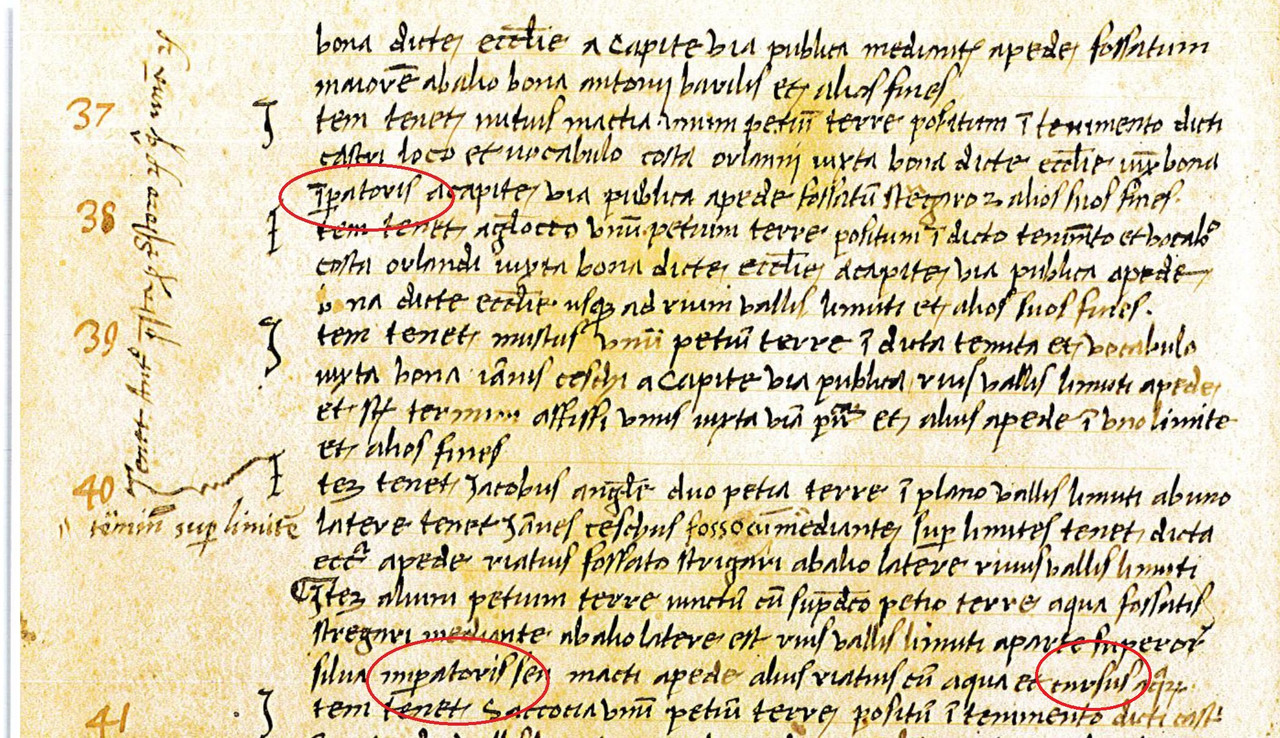 bona dicte eccĺie a capite via publica mediante apede fossatum
maiorē abalio bona antonii barilis et alios fines
37 Item tenet nutius mactia unum petiū terre positum ī tenimento dicti
castri loco et vocabulo costa orlanni iuxta bona dicte eccĺie iux̄ bona
īpatoris acapite via publica apede fossatū stegaro z alios suos fines.
38 Item tenet unū petium terre positum ī dicto tenimēto et vocalo
costa orlandi iuxta bona dicte eccĺie acapite via publica apede
bona dicte eccĺie usq ad rivum vallis limuti et alios suos fines.
39 Item tenet mustus unū petiū terre ī dicta tenuta et vocabulo
iuxta bona ianis ceschi a capite via publica rivus vallis limuti apede
et sūt termini affissi unus iuxta viā et alius apede ī uno limite
et alios fines
40 Itez tenet Jacobus duo petia terre ī plano vallis limuti abuno
latere tenet Jānes ceschus mediante sup limites tenet dicta
eccᵃ apede riatius fossato strigari abalio latere rivus vallis limuti
Itez alium petium terre iunctū cū supᵈcto petio terre aqua fossatis
stregari mediante abalio latere est rivus vallis limuti aparte superori
silva inpatoris seu macti apede alius riatius cū aqua et cursus aq̄z
41 Item tenet Saccocia unū petiū terre positū ī tenimento dicti cast
Tenet Antᵒ
tēminū sup limitē